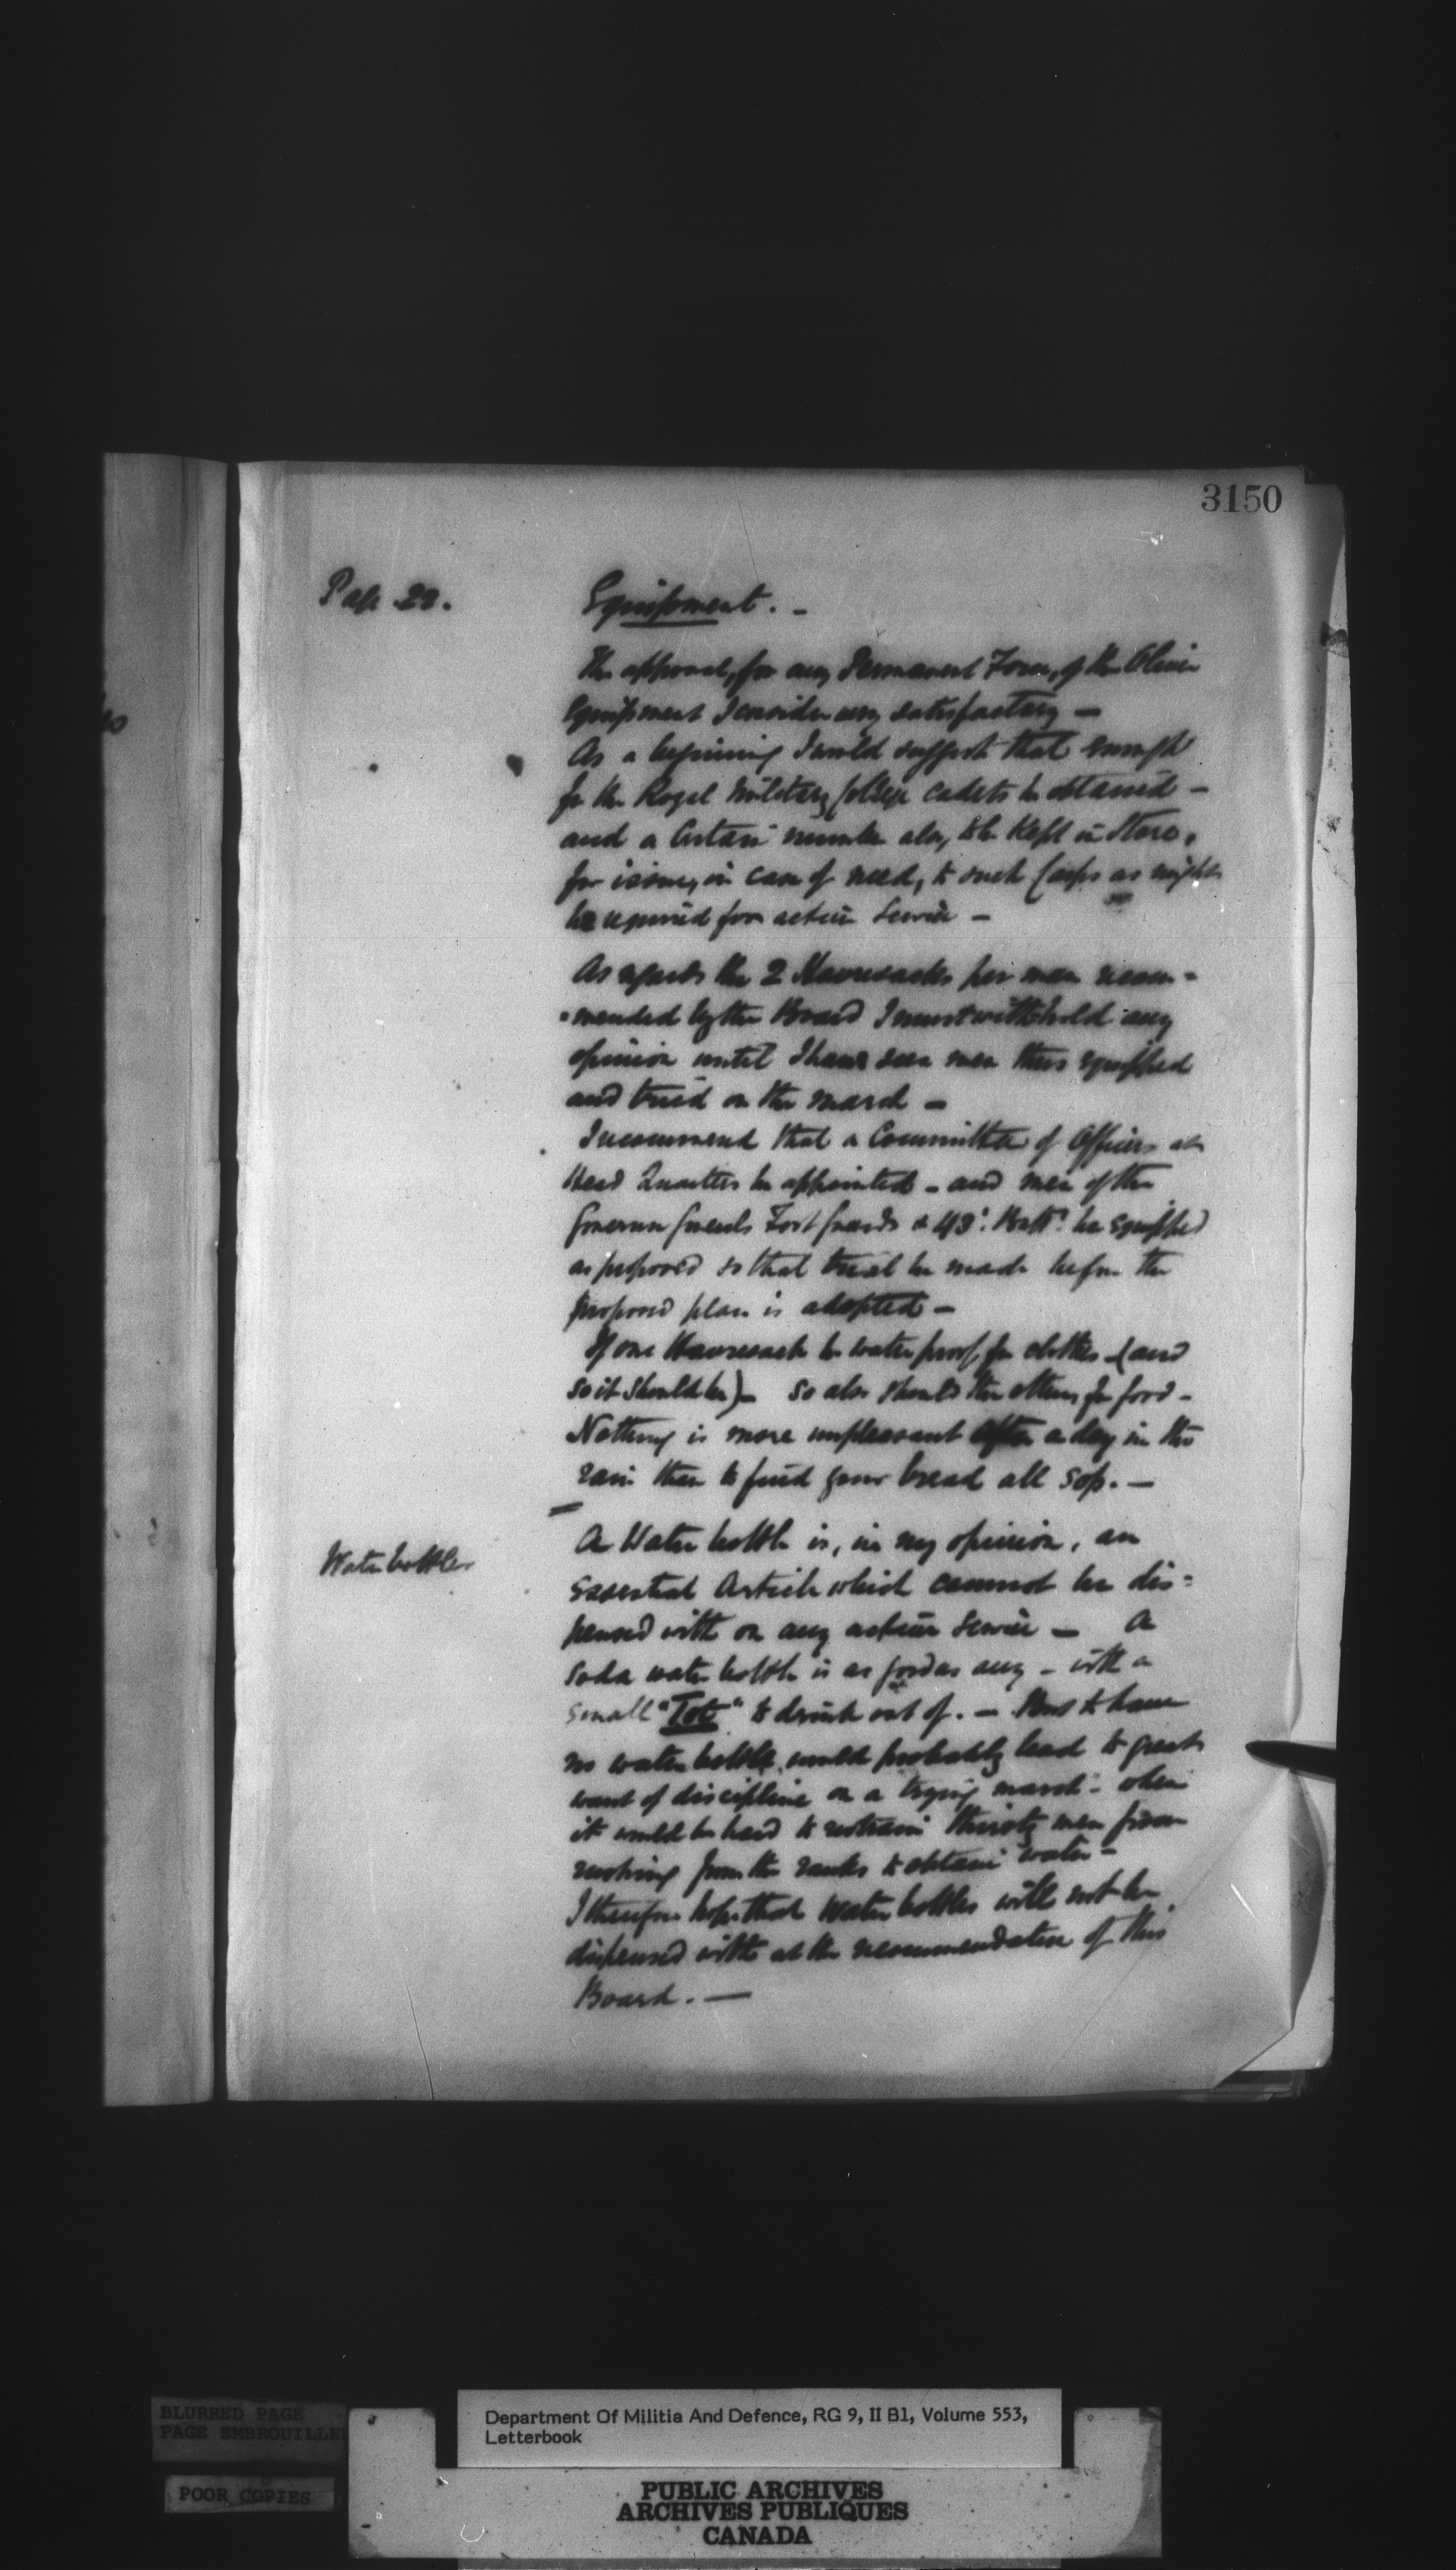 3150
Page 22.
Equipment. -
The approval, for any Permanent Force, of the Oliver
Equipment I consider very satisfactory -
As a beginning I would suggest that enough
for the Royal Military College Cadets be obtained -
and a certain number also, to be kept in Store,
for issue, in case of need, to such Corps as might
be required for active Service -
As regards the 2 Haversacks per man recom-
-mended by the Board I must withhold any
opinion until I have seen men thus equipped
and tried on the march -
I recommend that a Committee of Officers at
Head Quarters be appointed - and men of the
Governor Generals Foot Guards & 43d. Battn. be equipped
as proposed so that trial be made before the
proposed plan is adopted -
If one Haversack be waterproof, for clothes - (and
so it should be) - So also should the other, for food -
Nothing is more unpleasant after a day in the
rain than to find your bread all sop. -
Water bottles
A Water bottle is, in my opinion, an
Essential Article which cannot be dis-
pensed with on any active Service - A
Soda water bottle is as good as any - with a
small "Tot" to drink out of. - But to have
no water bottle, would probably lead to great
want of discipline on a trying march - when
it would be hard to restrain thirsty men from
rushing from the ranks to obtain water -
I therefore hope that Water bottles will not be
dispensed with at the recommendation of this
Board. -
BLURRED PAGE
PAGE EMBROUILLEE
POOR COPIES
Department Of Militia And Defence, RG 9, II B1, Volume 553,
Letterbook
PUBLIC ARCHIVES
ARCHIVES PUBLIQUES
CANADA